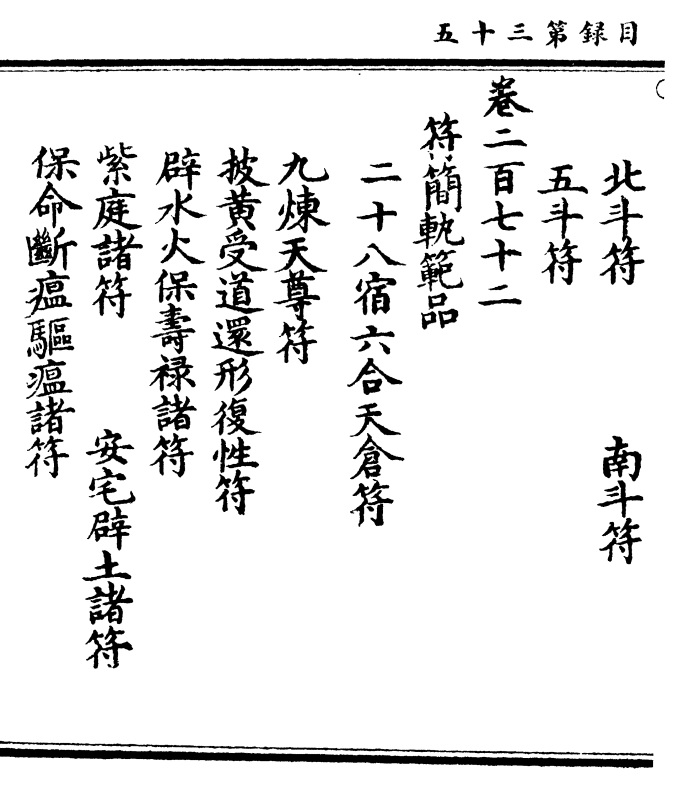 目録第三十五
北斗符　南斗符
五斗符
卷二百七十二
符簡軌範品
二十八宿六合天倉符
九煉天尊符
披黃受道還形復性符
辟水火保壽祿諸符
紫庭諸符　安宅辟土諸符
保命斷瘟驅瘟諸符